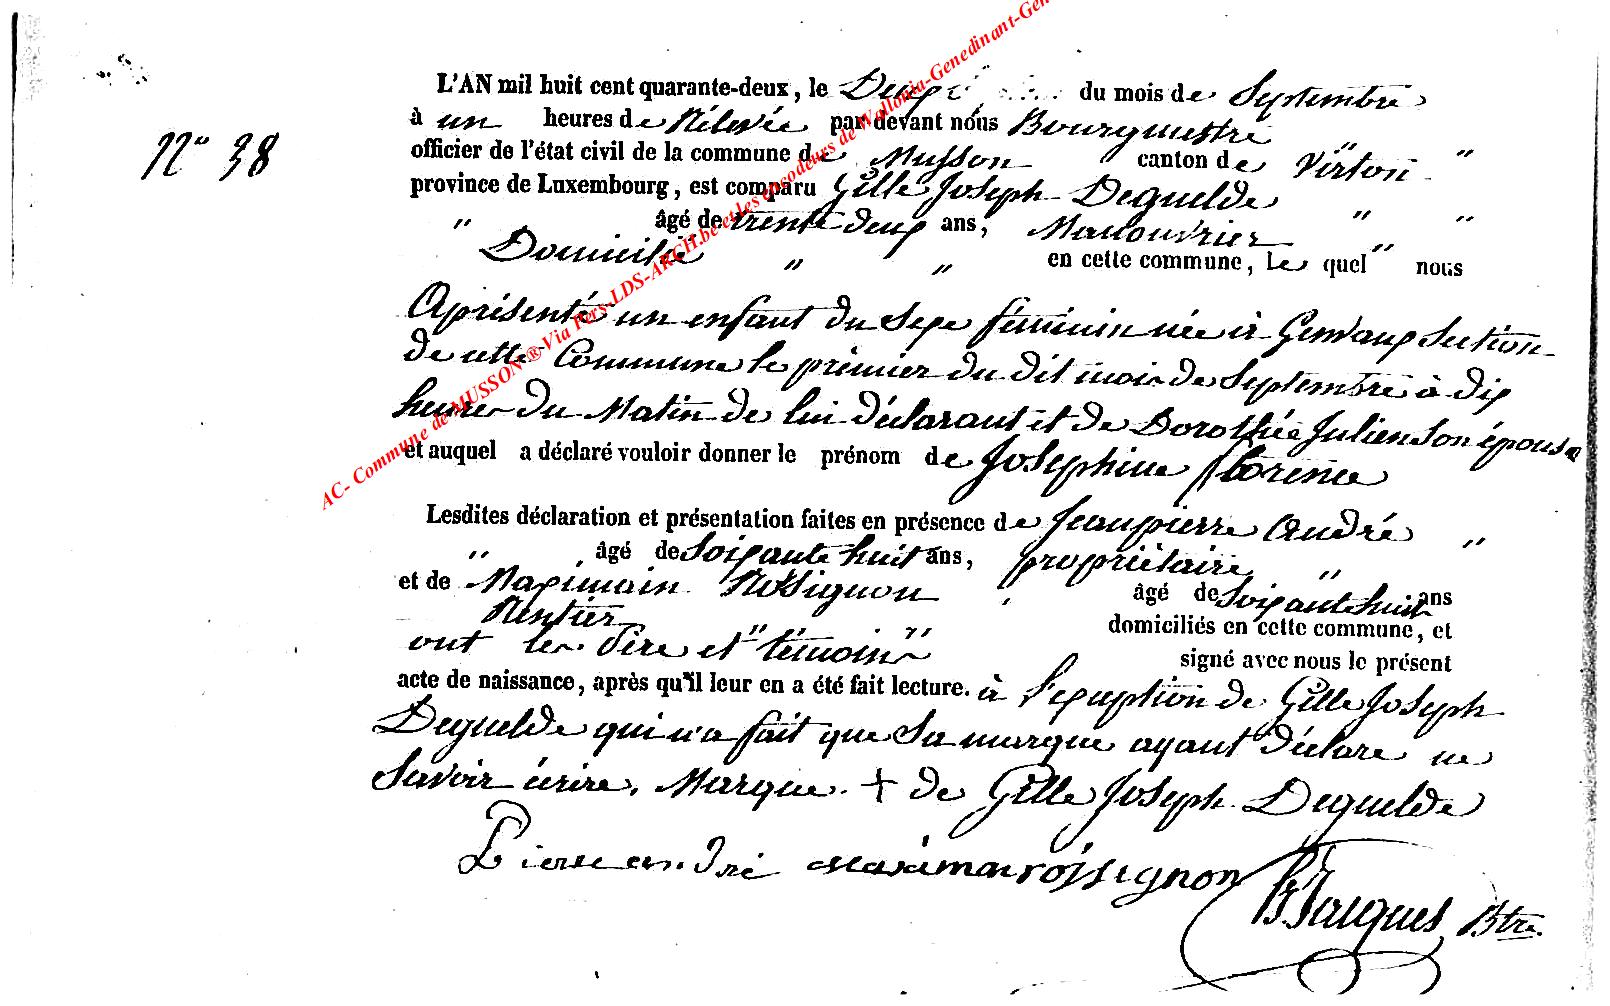 N° 38
L'AN mil huit cent quarante-deux, le Deuxième du mois de Septembre
à un heures de Rélevée par devant nous Bourgmestre
officier de l'état civil de la commune de Musson canton de Virton "
province de Luxembourg, est comparu Gille Joseph Deguelde
" âgé de trente deux ans, Manouvrier " "
Domicilié " " en cette commune, le quel " nous
a présenté un enfant du sexe féminin née à Gennaux section
de cette Commune le premier du dit mois de Septembre à dix
heures du Matin de lui déclarant et de Dorothée Julien son épouse
et auquel a déclaré vouloir donner le prénom de Josephine Florence
Lesdites déclaration et présentation faites en présence de Jeanpierre André "
" âgé de soixante huit ans, propriétaire "
et de Maximain Rossignon âgé de soixante huit ans
Rentier domiciliés en cette commune, et
ont les Père et " témoins " signé avec nous le présent
acte de naissance, après qu'il leur en a été fait lecture. à l'exception de Gille Joseph
Deguelde qui n'a fait que sa marque ayant déclaré ne
savoir écrire. Marque + de Gille Joseph Deguelde
Pierre andré maximain rossignon
Jacques Btre.
AC- Commune de MUSSON® Via Pers-LDS-ARCH.be et les encodeurs de Wallonia-Genedinant-Gen